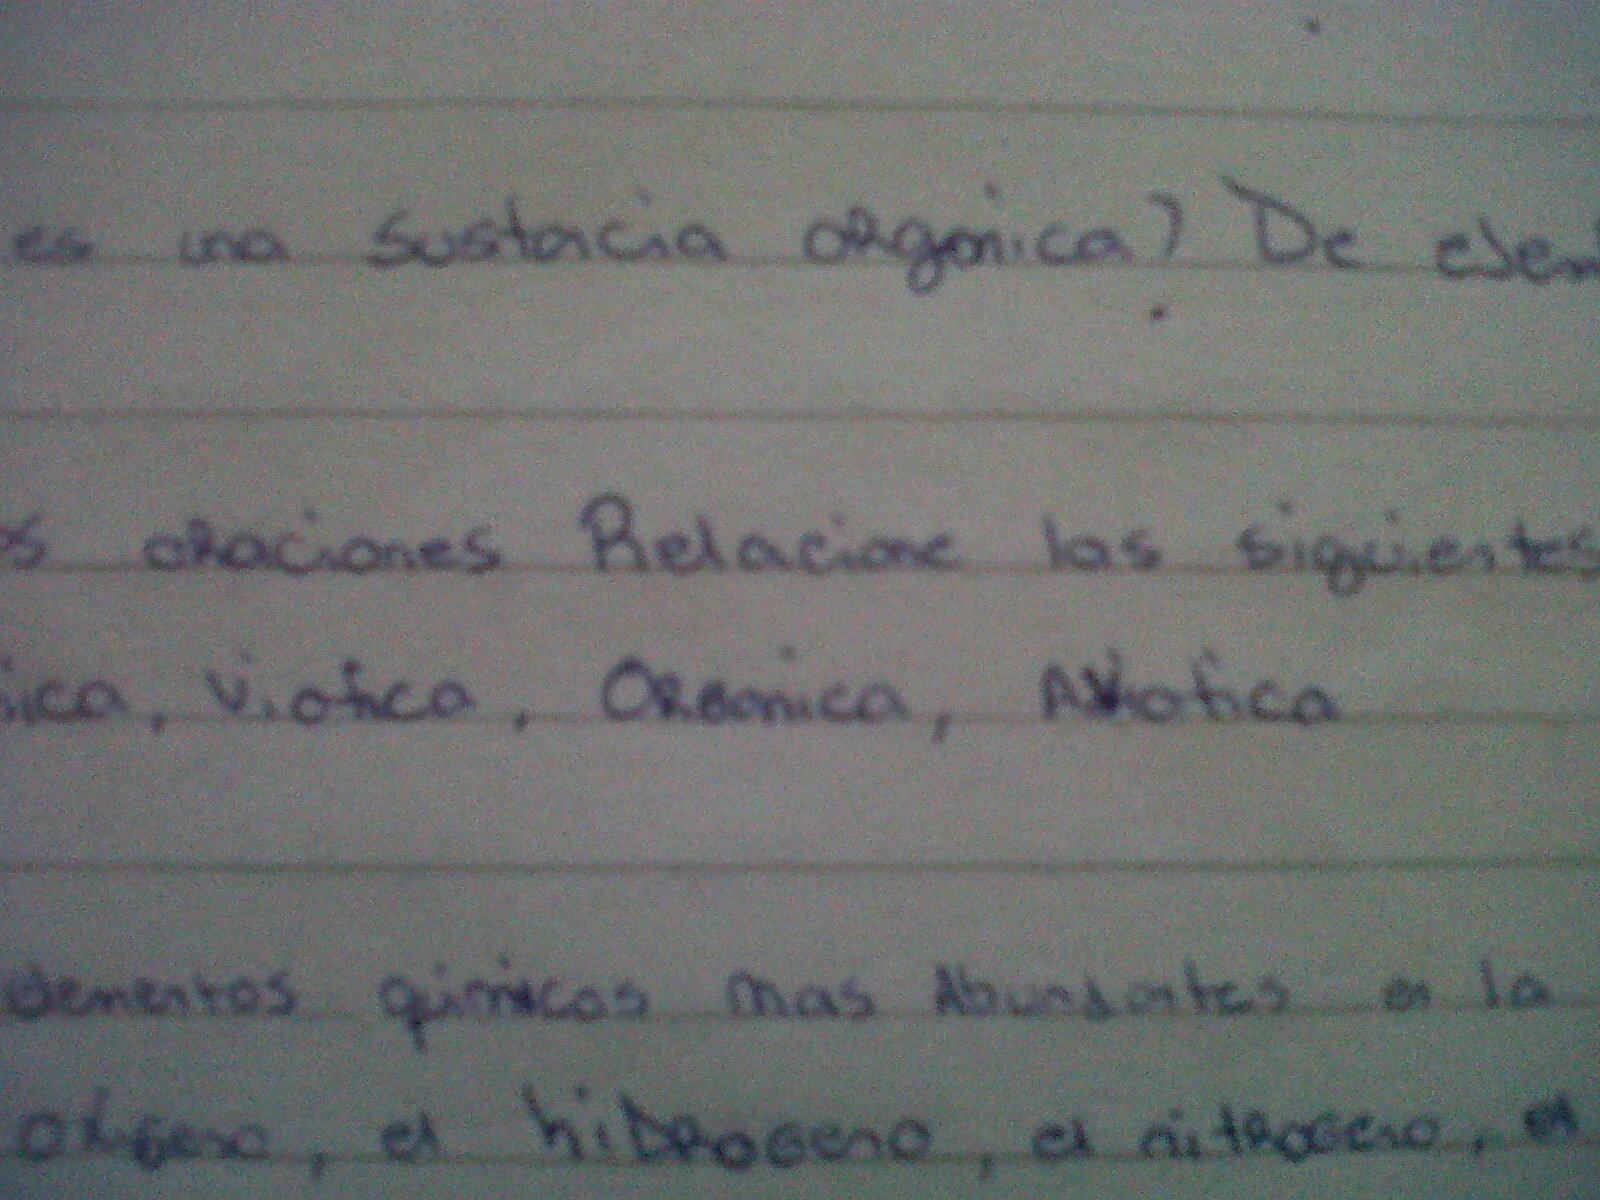 es una sustacia organica? De ejem
s oraciones Relacione las siguientes
ica, Viotica, Organica, AViotica
elementos quimicos mas Abundantes en la
oxigeno, el hidrogeno, el nitrogeno, el